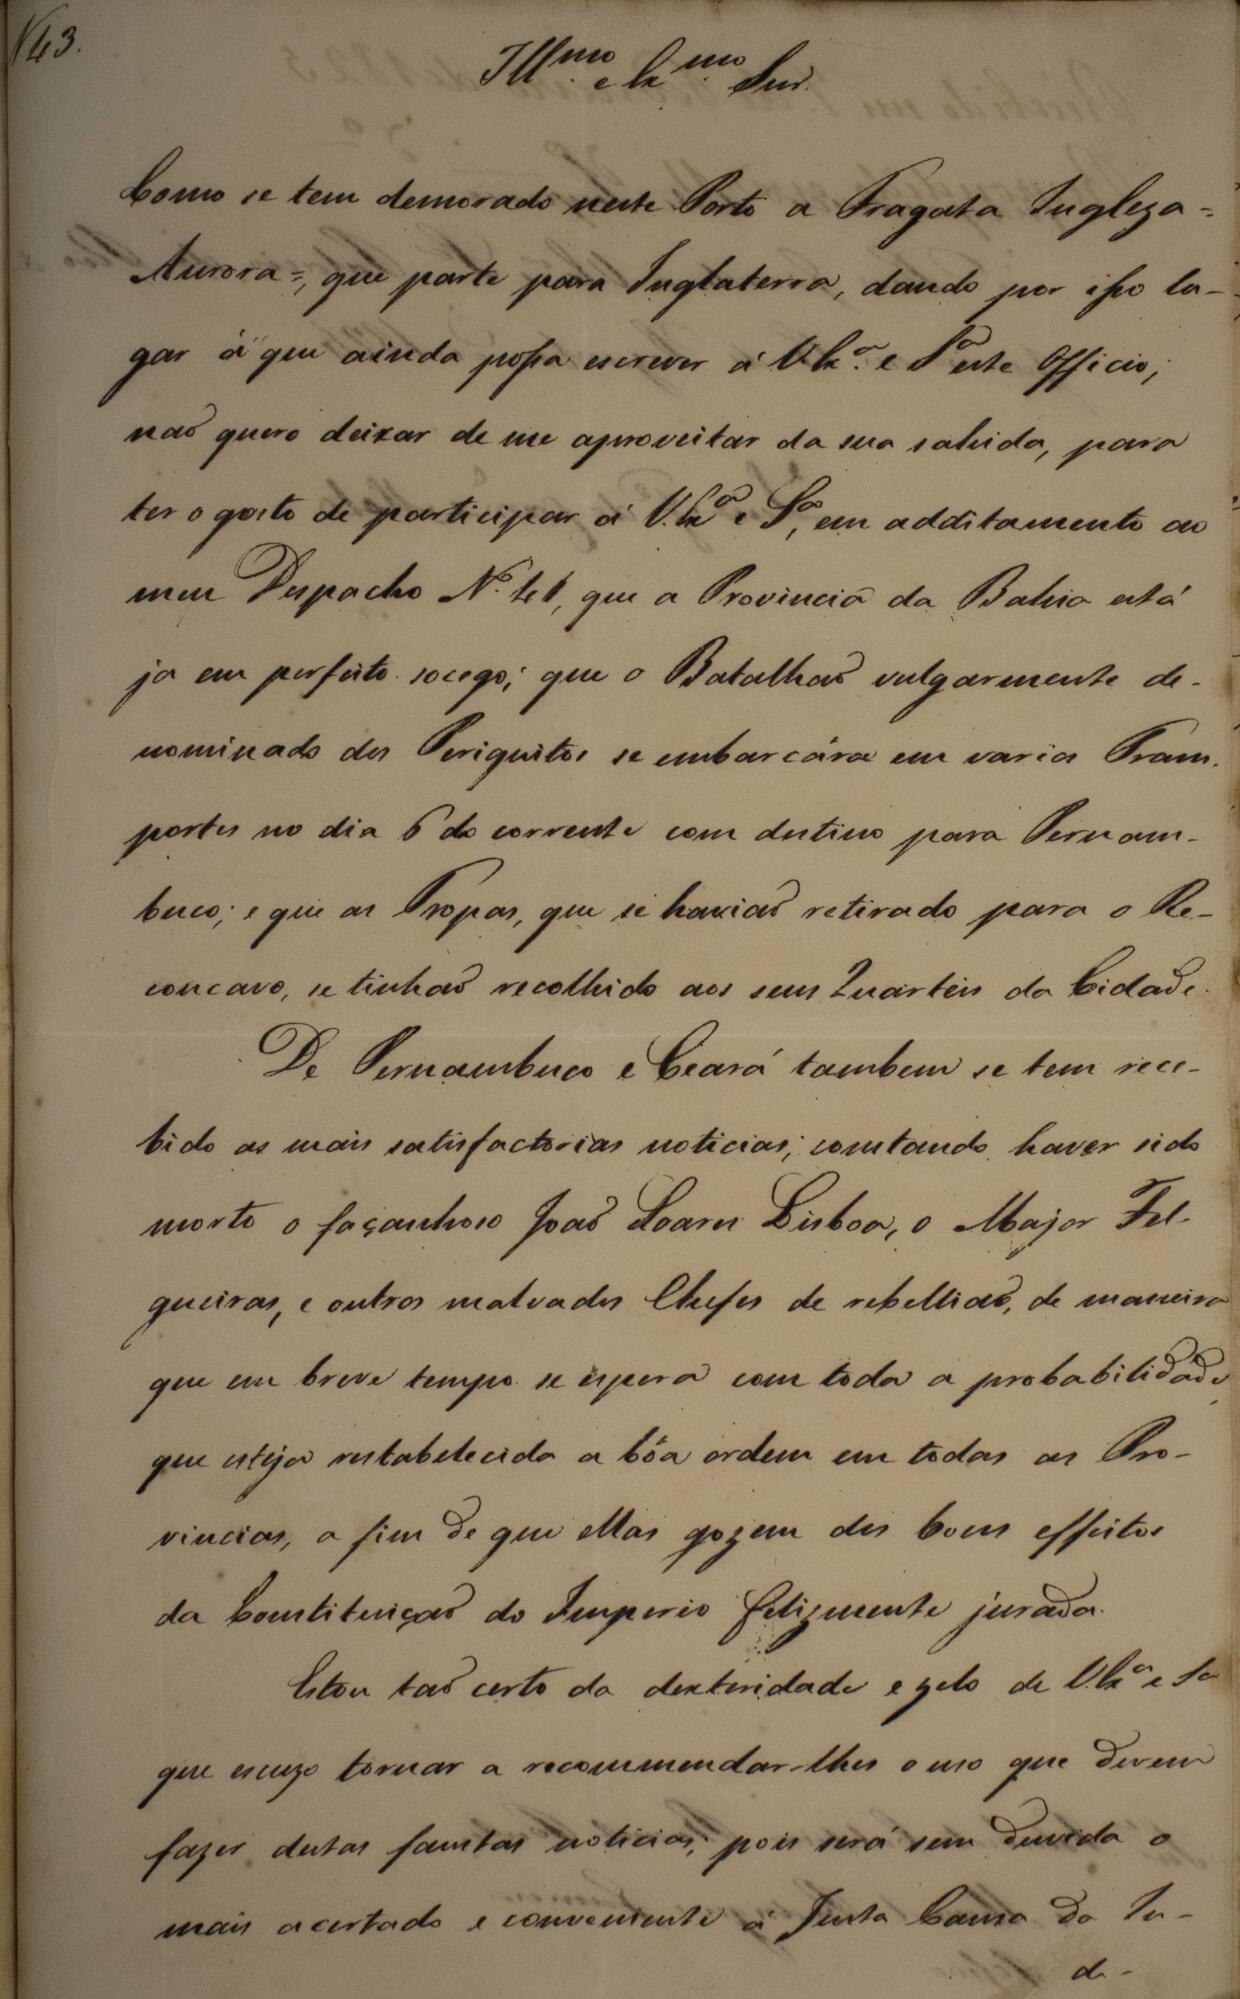 N 43.
Ill.mo e Ex.mo Snr.
Como se tem demorado neste Porto a Fragata Ingleza =
Aurora =, que parte para Inglaterra, dando por isso lu-
gar á que ainda possa escrever á V. Ex.a e S.a este Officio;
naõ quero deixar de me aproveitar da sua sahida, para
ter o gosto de participar á V. Ex.a e S.a, em additamento ao
meu Despacho N.º 41, que a Provincia da Bahia está
ja em perfeito socego; que o Batalhaõ vulgarmente de-
nominado dos Periquitos se embarcára em varios Trans-
portes no dia 6 do corrente com destino para Pernam-
buco; e que as Tropas, que se haviaõ retirado para o Re-
concavo, se tinhaõ recolhido aos seus Quarteis da Cidade.
De Pernambuco e Ceará tambem se tem rece-
bido as mais satisfactorias noticias; constando haver sido
morto o façanhoso Joaõ Soares Lisboa, o Major Fel-
gueiras, e outros malvados Chefes de rebelliaõ, de maneira
que em breve tempo se espera com toda a probabilidade,
que esteja restabelecida a bôa ordem em todas as Pro-
vincias, a fim de que ellas gozem dos bons effeitos
da Constituiçaõ do Imperio felizmente jurada.
Estou taõ certo da dexteridade e zelo de V. Ex.a e S.a
que escuzo tornar a recommendar-lhes o uso que devem
fazer destas faustas noticias; pois será sem duvida o
mais acertado e conveniente á Justa Causa da In-
de-